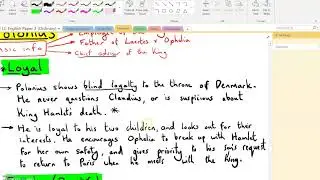 Polonius
Basic info
Father of Laertes & Ophelia
Chief advisor of the King
* Loyal
→ Polonius shows blind loyalty to the throne of Denmark.
He never questions Claudius, or is suspicious about
King Hamlet's death. *
→ He is loyal to his two children, and looks out for their
interests. He encourages Ophelia to break up with Hamlet
for her own safety, and gives priority to his son's request
to return to Paris when he meets with the King.